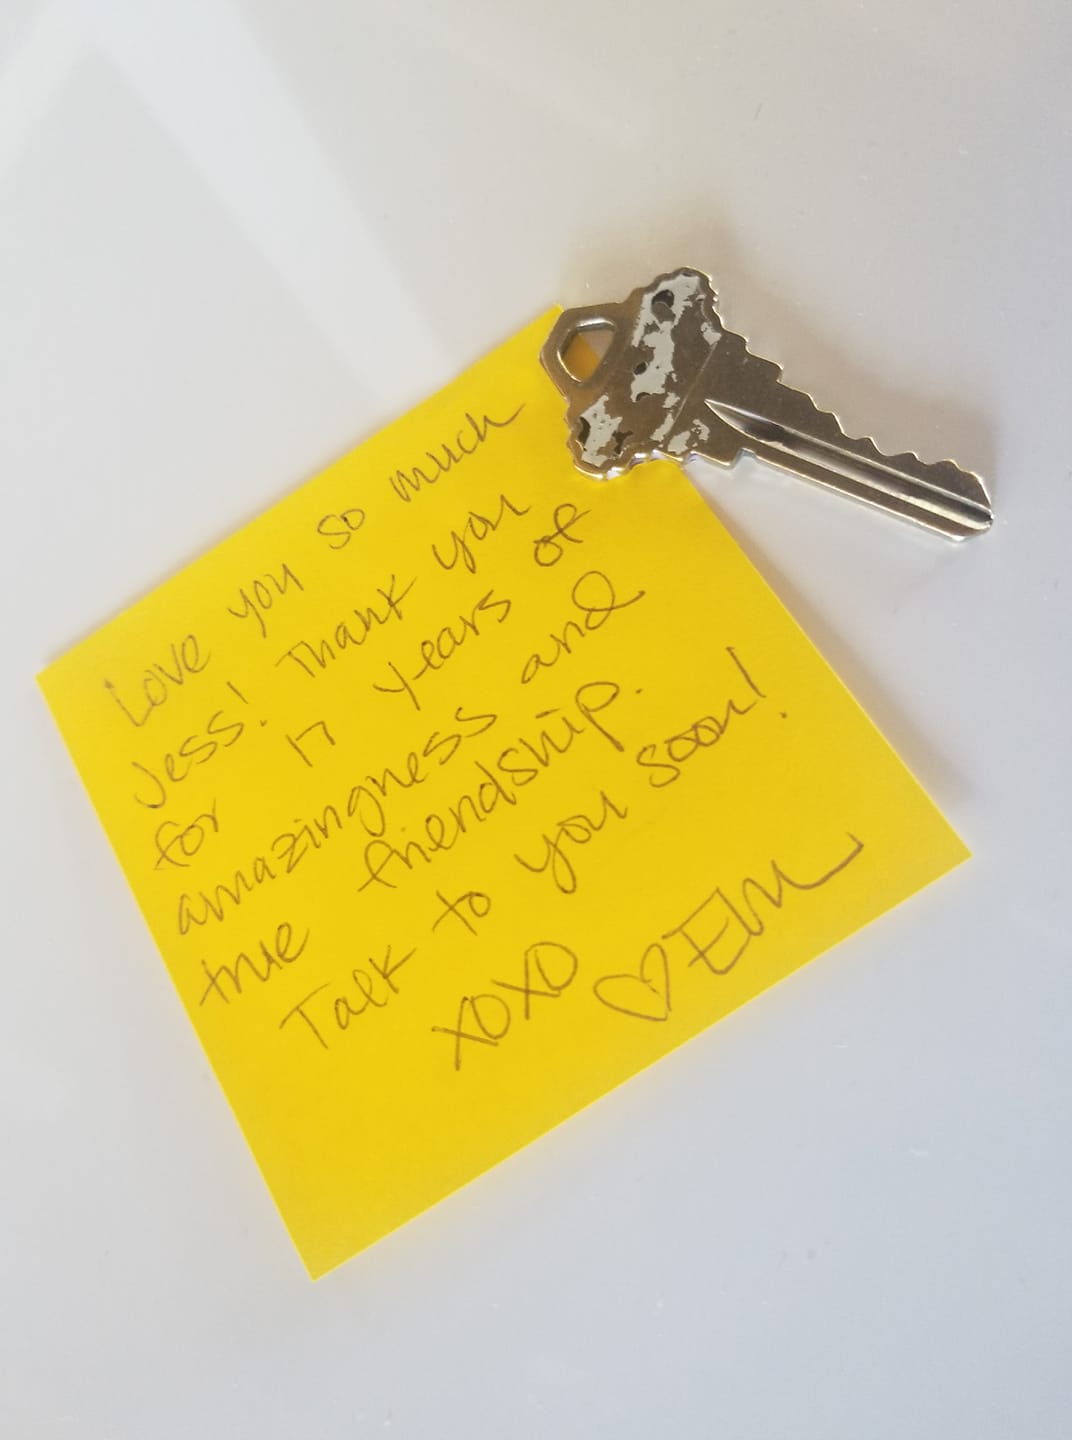 Love you so much
Jess! Thank you
for 17 years of
amazingness and
true friendship.
Talk to you soon!
XOXO